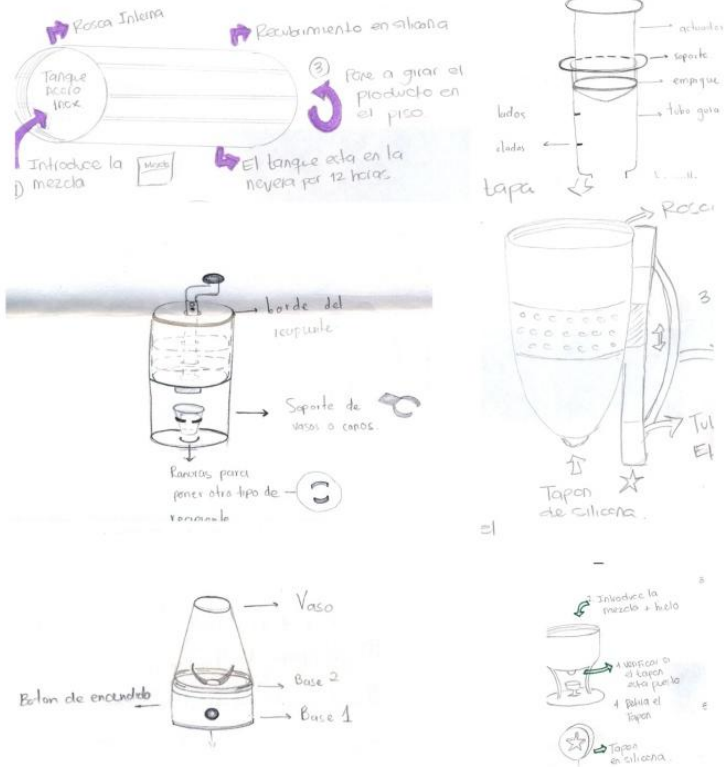 Rosca Interna
Recubrimiento en silicona
Tanque
Acero
Inox.
3
Pone a girar el
producto en
el piso.
Introduce la
mezcla
Mezcla
El tanque esta en la
nevera por 12 horas
soporte
empaque
lados
elados
tapa
borde del
recipiente
Soporte de
vasos o conos.
Ranuras para
poner otro tipo de
recipiente
3
Tapon
de silicona.
El
Vaso
Base 2
Base 1
Boton de encendido
Introduce la
mezcla + hielo
el tapon
esta puesto
4 Retira el
Tapon
Tapon
en silicona